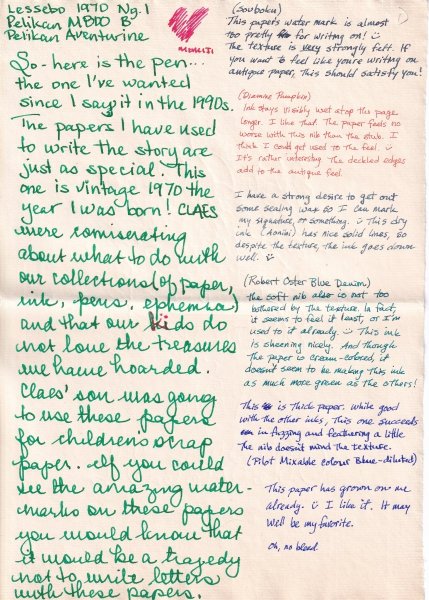 Lessebo 1970 Ng. 1
Pelikan M800 B
Pelikan Aventurine
So- here is the pen...
the one I've wanted
since I say it in the 1990s.
The papers I have used
to write the story are
just as special. This
one is vintage 1970 the
year I was born! CLAES
were comiserating
about what to do with
our collections (of paper,
ink, pens, ephemera)
and that our kids do
not love the treasures
we have hoarded.
Claes' son was going
to use these papers
for children's scrap
paper. If you could
see the amazing water-
marks on these papers
you would know that
it would be a tragedy
not to write letters
with these papers.
(Souboku)
This papers water mark is almost
too pretty for writing on! ☺
The texture is very strongly felt. If
you want to feel like you're writing on
antique paper, this should satisfy you!
(Diamine Pumpkin)
Ink stays visibly wet atop the page
longer. I like that. The paper feels no
worse with this nib than the stub. I
think I could get used to the feel.
It's rather interesting. The deckled edges
add to the antique feel.
I have a strong desire to get out
some sealing wax so I can mark
my signature, or something. ☺ This dry
ink (Aonibi) has nice solid lines, so
despite the texture, the ink goes down
well. ☺
(Robert Oster Blue Denim)
the soft nib also is not too
bothered by the texture. In fact,
it seems to feel it least, or I'm
used to it already. ☺ This ink
is sheening nicely. And though
the paper is cream-colored, it
doesn't seem to be making this ink
as much more green as the others!
This is thick paper. While good
with the other inks, this one succeeds
in fuzzing and feathering a little.
The nib doesn't mind the texture.
(Pilot Mixable colour Blue-diluted)
This paper has grown on me
already. ☺ I like it. It may
well be my favorite.
Oh, no bleed.